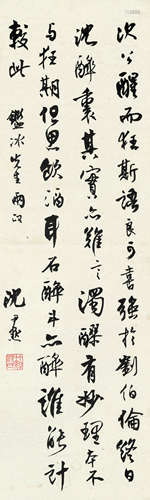 次公醒而狂斯語良可喜強於劉伯倫終日
沈醉裏其實亦難言濁醪有妙理本不
與狂期但思飲酒耳石醉斗亦醉誰能計
較此 鑑冰先生
沈尹默